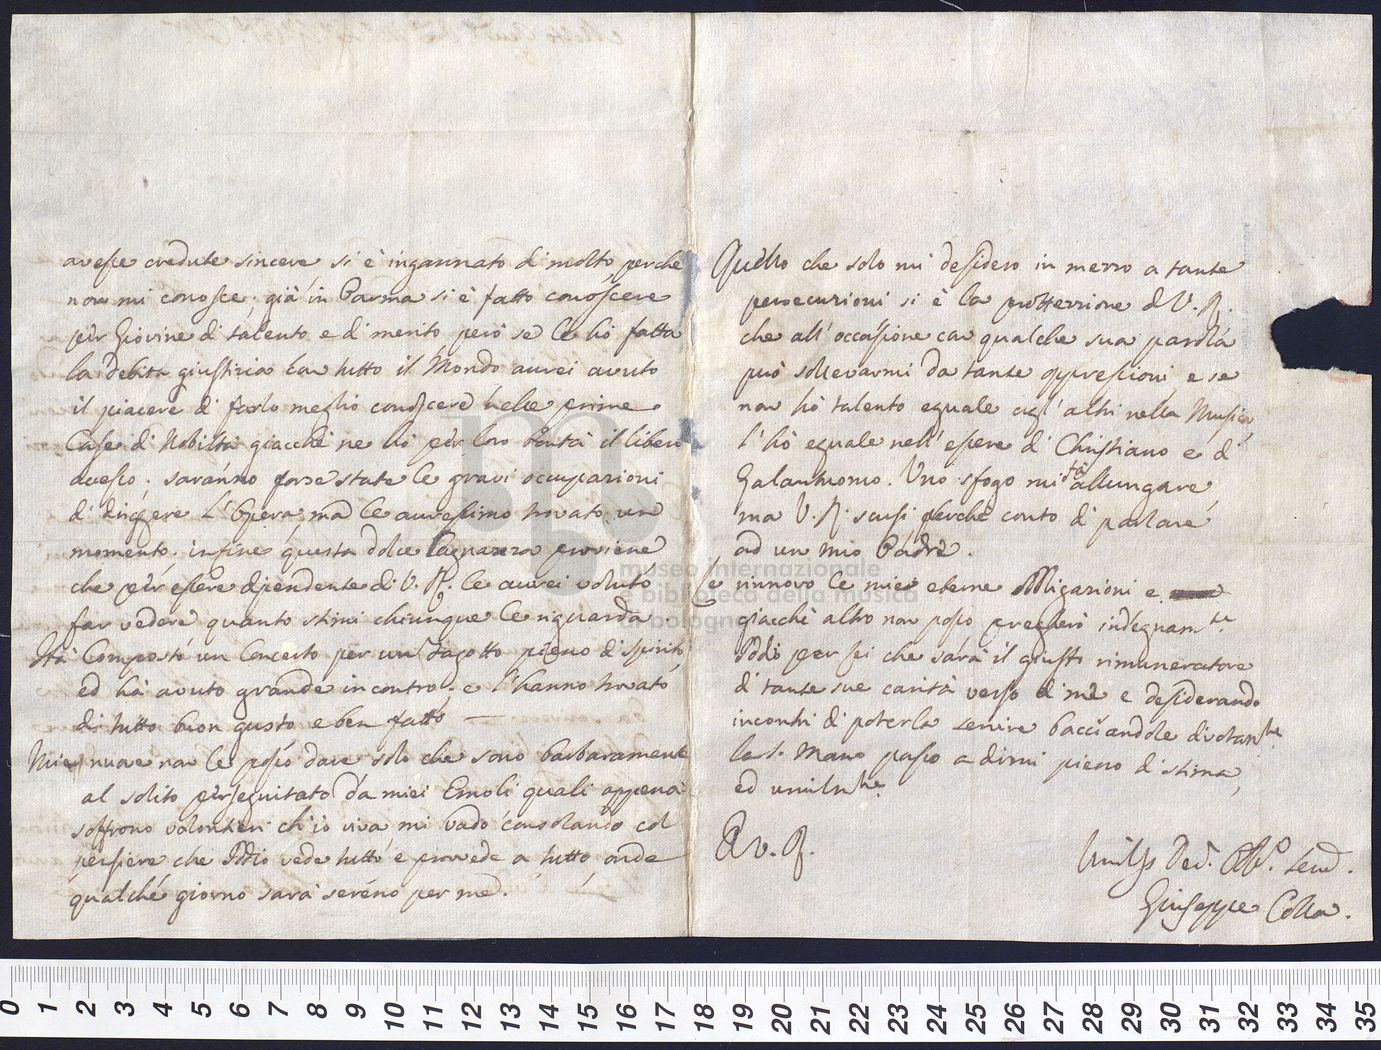 avesse credute sincere si è ingannato di molto, perche
non mi conosce. già in Parma si è fatto conoscere
per Giovine di talento e di merito però se le hò fatta
la debita giustizia con tutto il Mondo aurei avuto
il piacere di farlo meglio conoscere nelle prime
Case di Nobiltà giacchè ne hò per loro bontà il libero
accesso. saranno forse state le gravi occupazioni
di dirigere L'Opera mà le auressimo trovato un
momento. infine questa dolce lagnanza proviene
che per essere dipendente di V. R. le aurei voluto
far vedere quanto stimi chiunque le riguarda
Hà Composto un Concerto per un Fagotto pieno di spirito
ed hà avuto grande incontro. e l'hanno trovato
di tutto buon gusto e ben fatto —
Mie nuove non le posso dare solo che sono barbaramente
al solito perseguitato da miei Emoli quali appena
soffrono volontieri ch'io viva mi vado consolando col
pensiere che Iddio vede tutto e provede a tutto onde
qualche giorno sarà sereno per me.
Quello che solo mi desidero in mezzo a tante
persecuzioni si è la prottezzione di V. R.
che all'occasione con qualche sua parola
può sollevarmi da tante oppressioni e se
non hò talento eguale agl'altri nella Musica
l'hò eguale nell'essere di Christiano e di
Galantuomo. Uno sfogo mi fà allungare
ma V. R. scusi perche conto di parlare
ad un mio Padre.
Le rinnovo le mie eterne Obbligazioni e
giacchè altro non posso pregherò indegnamte
Iddio per lei che sarà il giusto rimuneratore
di tante sue carità verso di me e desiderando
incontri di poterla servire bacciandole divotamte
la S. Mano passo a dirmi pieno di stima
ed umiltà
D V. R.
Umilss Devo. Obbo. Servo.
Giuseppe Colla.
museo internazionale
e biblioteca della musica
di bologna
0 1 2 3 4 5 6 7 8 9 10 11 12 13 14 15 16 17 18 19 20 21 22 23 24 25 26 27 28 29 30 31 32 33 34 35